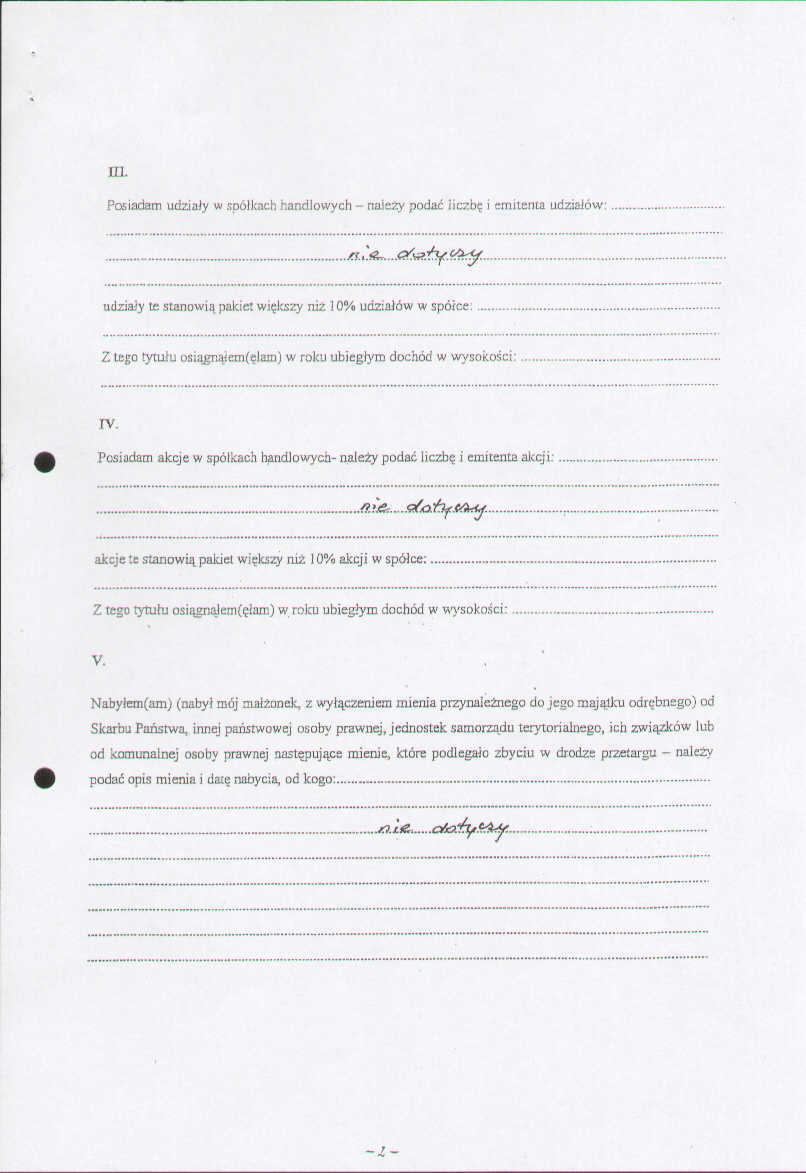 III.
Posiadam udziały w spółkach handlowych – należy podać liczbę i emitenta udziałów: ..............................
..............................
nie dotyczy
..............................
udziały te stanowią pakiet większy niż 10% udziałów w spółce: ..............................
..............................
Z tego tytułu osiągnąłem(ęłam) w roku ubiegłym dochód w wysokości: ..............................
..............................
IV.
Posiadam akcje w spółkach handlowych- należy podać liczbę i emitenta akcji: ..............................
..............................
nie dotyczy
..............................
akcje te stanowią pakiet większy niż 10% akcji w spółce: ..............................
..............................
Z tego tytułu osiągnąłem(ęłam) w roku ubiegłym dochód w wysokości: ..............................
V.
Nabyłem(am) (nabył mój małżonek, z wyłączeniem mienia przynależnego do jego majątku odrębnego) od
Skarbu Państwa, innej państwowej osoby prawnej, jednostek samorządu terytorialnego, ich związków lub
od komunalnej osoby prawnej następujące mienie, które podlegało zbyciu w drodze przetargu – należy
podać opis mienia i datę nabycia, od kogo:..............................
..............................
nie dotyczy
..............................
..............................
..............................
..............................
..............................
- 2 -